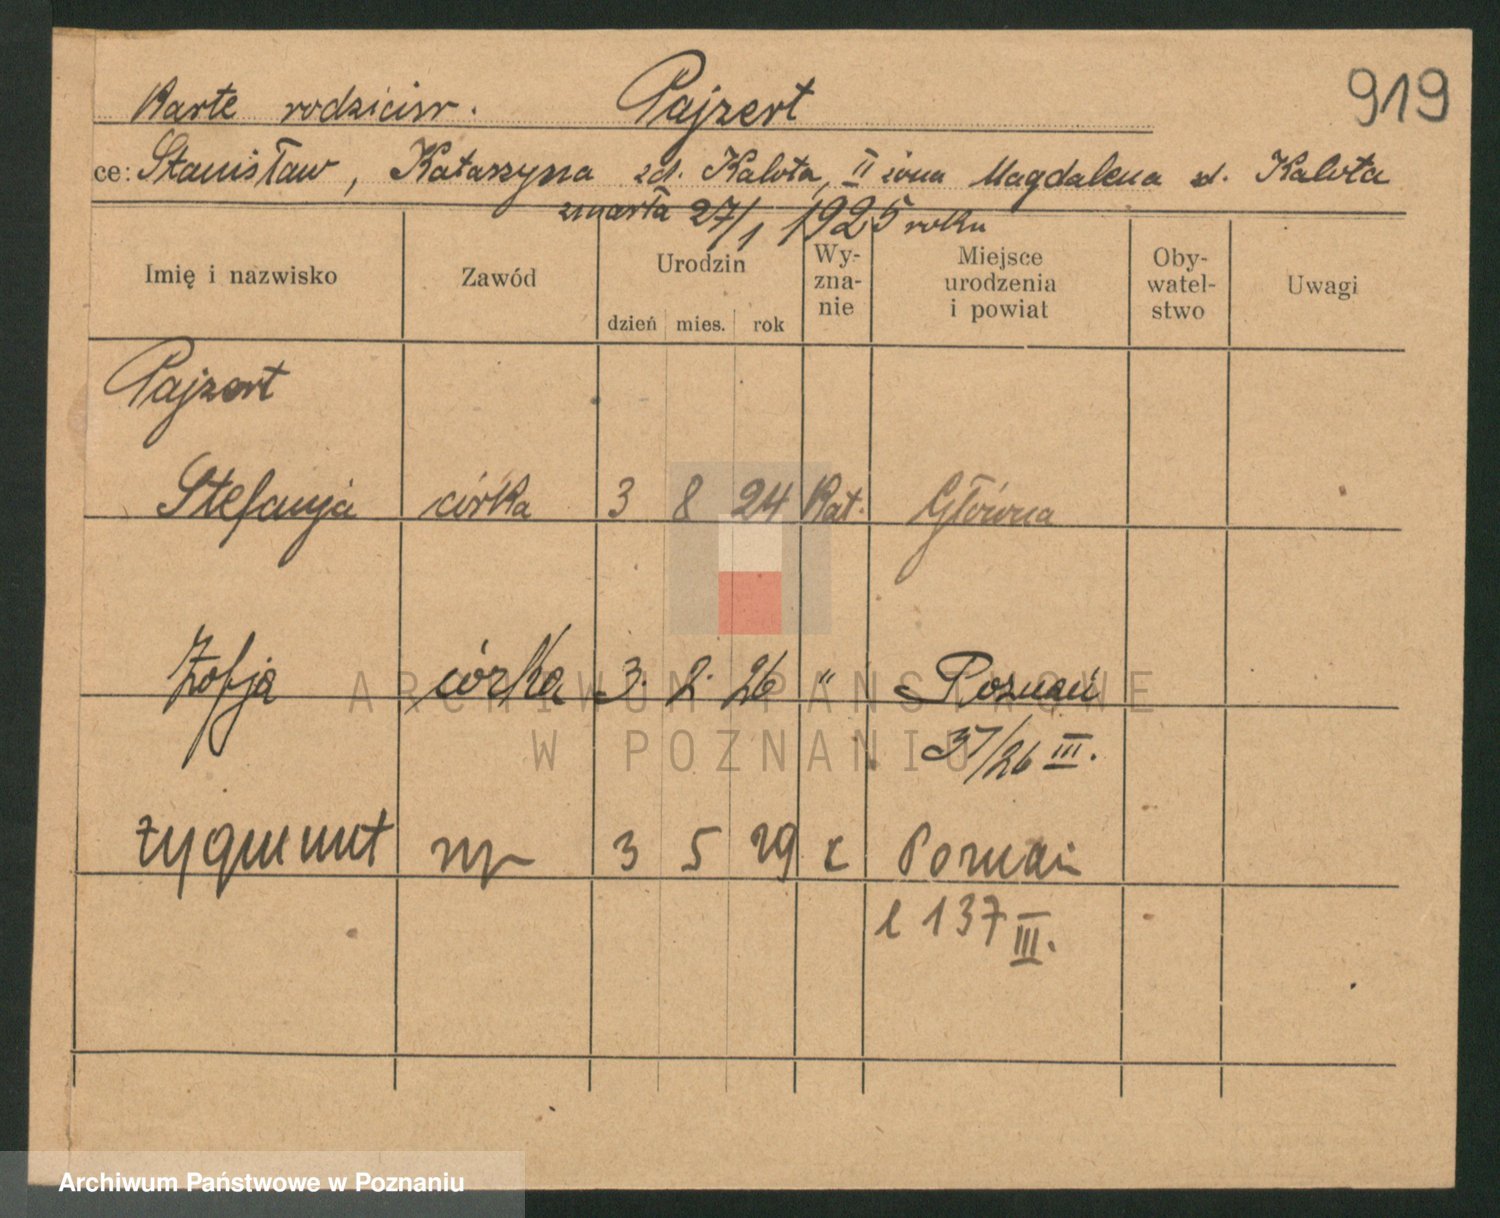 Karte rodziców. Pajzert 919
ce: Stanisław, Katarzyna zd. Kalota, II żona Magdalena zd. Kalota
zmarła 27/1 1925 roku
Imię i nazwisko Zawód Urodzin dzień mies. rok Wy-zna-nie Miejsce urodzenia i powiat Oby-watel-stwo Uwagi
Pajzert
Stefanja córka 3 8 24 Kat. Główna
Zofja córka 3. 2. 26 " Poznań
37/26 III.
Zygmunt 3 5 29 k Poznań
l 137 III.
ARCHIWUM PAŃSTWOWE
W POZNANIU
Archiwum Państwowe w Poznaniu